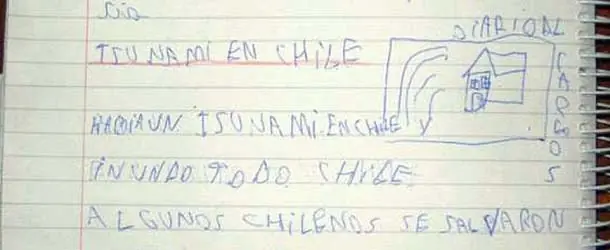 DIARIO AL
CARGOS
TSUNAMI EN CHILE
HABIA UN TSUNAMI EN CHILE Y
INUNDO TODO CHILE
ALGUNOS CHILENOS SE SALVARON